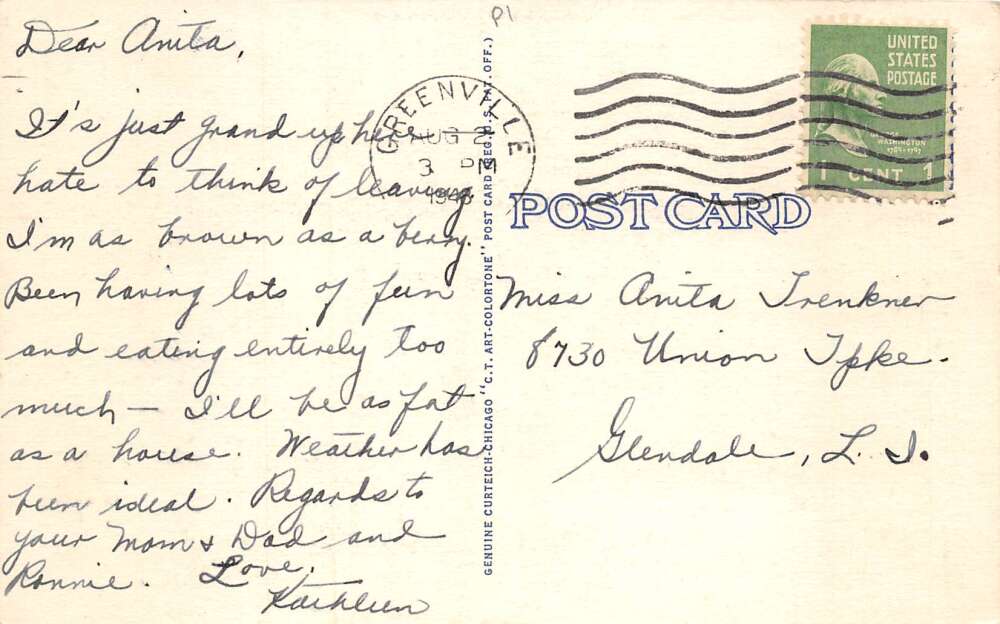 P1
Dear Anita,
It's just grand up here
hate to think of leaving
I'm as brown as a berry.
Been having lots of fun
and eating entirely too
much — I'll be as fat
as a house. Weather has
been ideal. Regards to
your Mom & Dad and
Ronnie. Love,
Kathleen
GREENVILLE
AUG 2
3 PM
GENUINE CURTEICH-CHICAGO "C.T. ART-COLORTONE" POST CARD (REG. U.S. PAT. OFF.)
UNITED
STATES
POSTAGE
GEORGE
WASHINGTON
1789-1797
1 CENT 1
POST CARD
Miss Anita Trenkner
8730 Union Tpke.
Glendale, L. I.